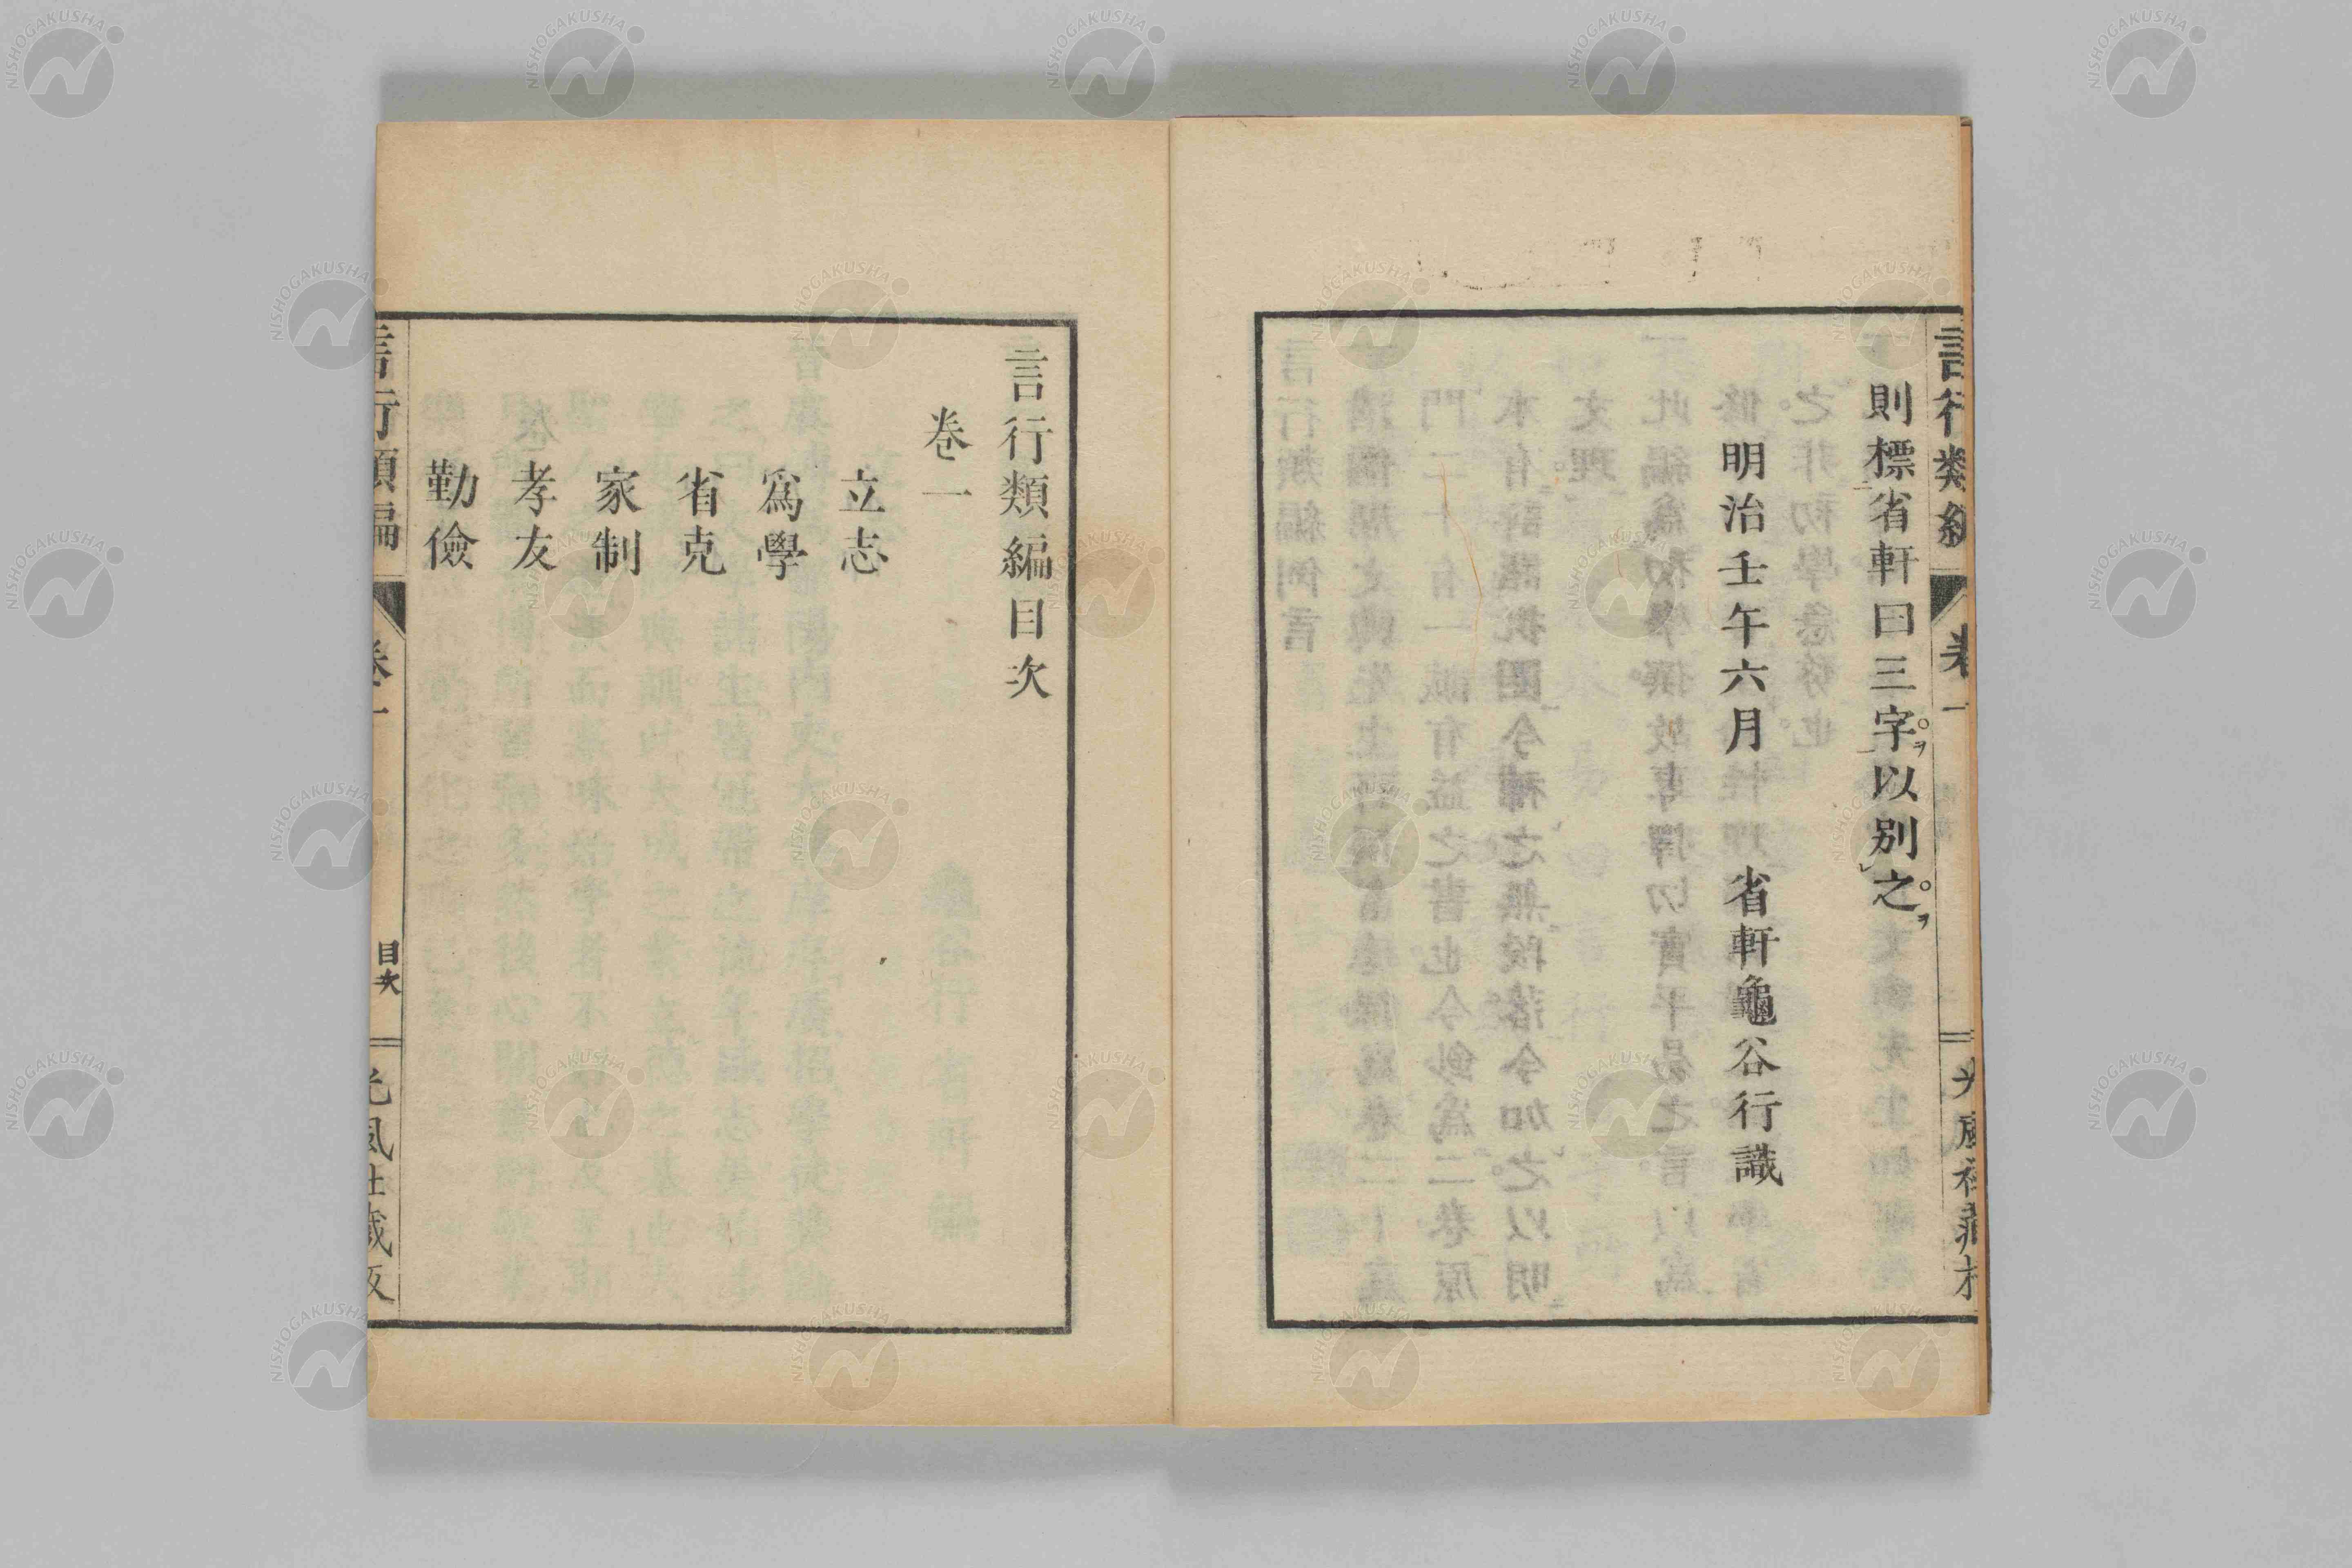 言行類編
卷一
光風社藏板
則標省軒曰三字。ヲ以別之。ヲ
明治壬午六月 省軒龜谷行識
言行類編目次
卷一
立志
爲學
省克
家制
孝友
勤儉
言行類編
卷一
目次
光風社藏板
NISHOGAKUSHA